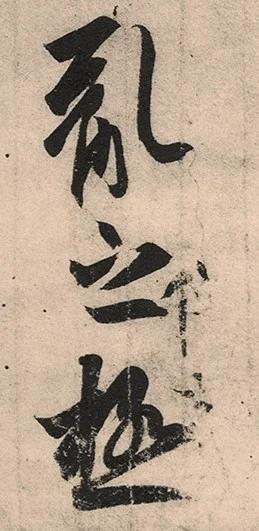 亂之極